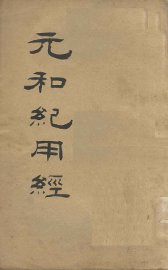 元和紀用經